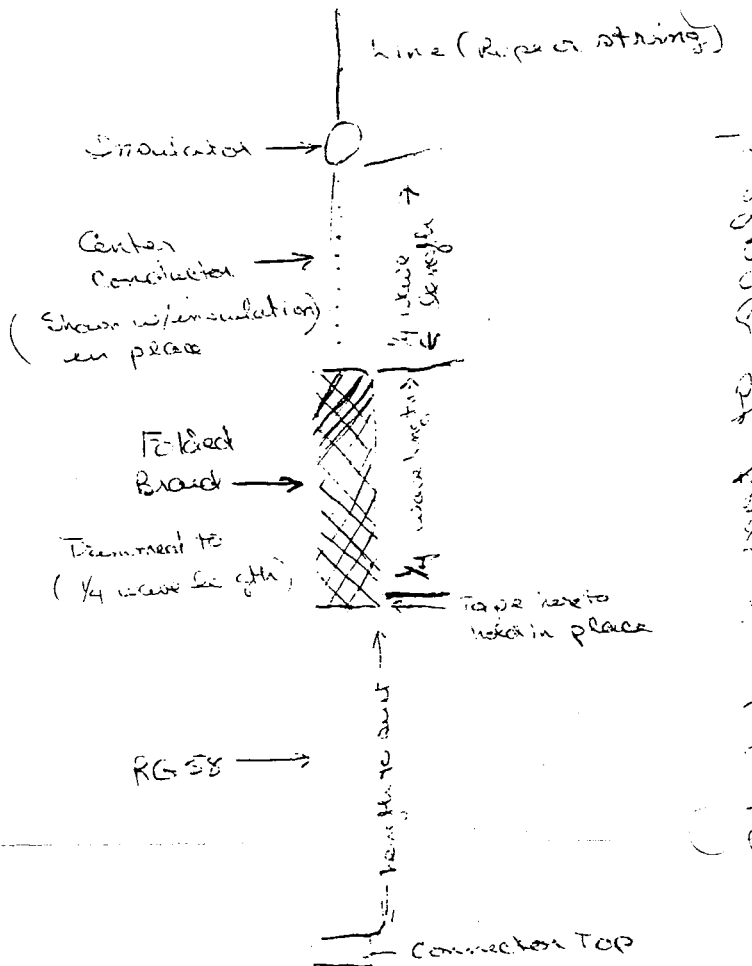 Line (Rope or string)
Insulator
Center
Conductor
(Shown w/insulation)
in place
1/4 wave
length
Folded
Braid
Trimmed to
(1/4 wave length)
1/4 wave length
Tape here to
hold in place
RG 58
length to suit
Connector Top